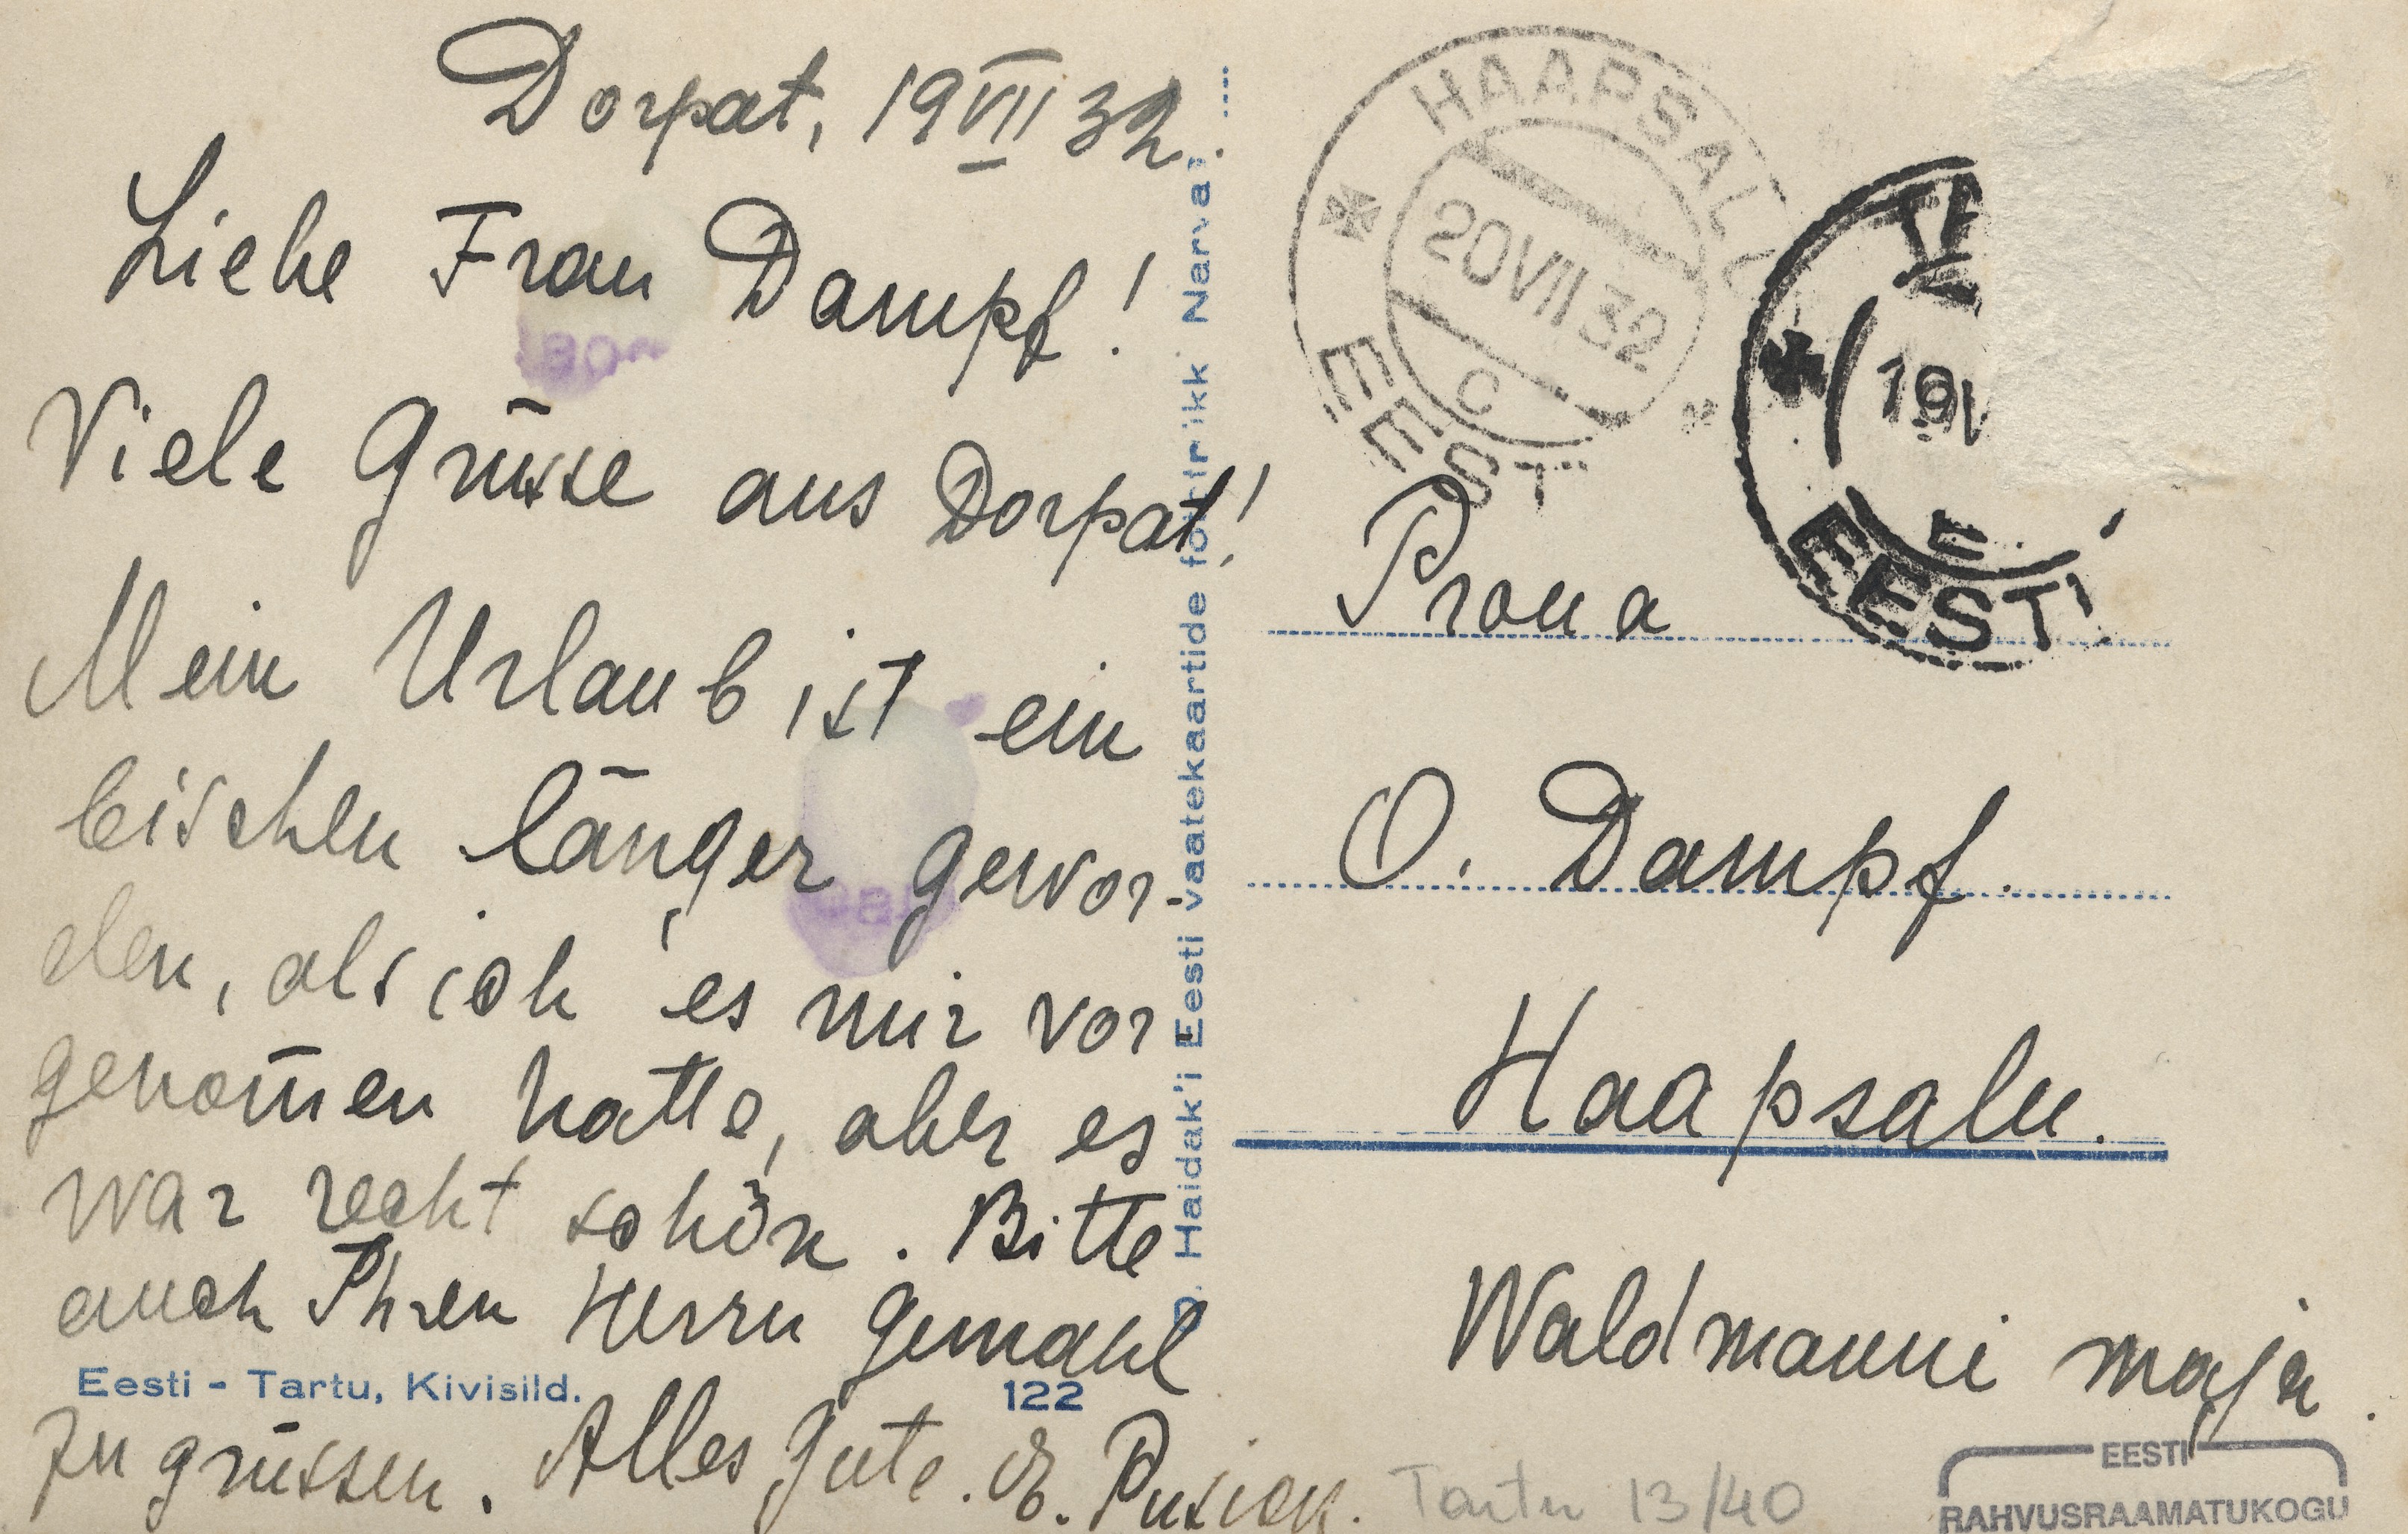 Dorpat, 19 VII 32.
Liebe Frau Dampf!
Viele Grüsse aus Dorpat!
Mein Urlaub ist ein
bischen länger gewor-
den, als ich es mir vor
genom̄en hatte, aber es
war recht schön. Bitte
auch Ihren Herrn Gemahl
zu grüssen. Alles Gute. E.
Eesti - Tartu, Kivisild.
122
D. Haidak'i Eesti vaatekaartide fototrükk Narva
HAAPSALU
20 VII 32
C
EESTI
19 V
E.
EESTI
Proua
O. Dampf.
Haapsalu.
Waldmanni maja.
Tartu 13/40
EESTI
RAHVUSRAAMATUKOGU